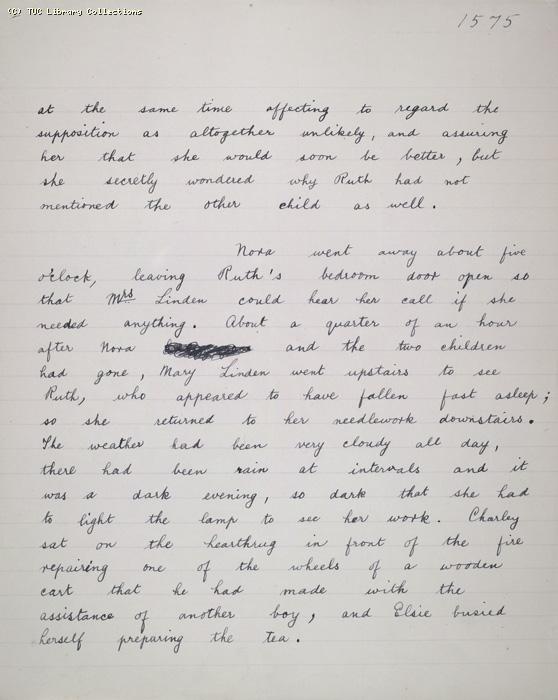 (C) TUC Library Collections
1575
at the same time affecting to regard the
supposition as altogether unlikely, and assuring
her that she would soon be better, but
she secretly wondered why Ruth had not
mentioned the other child as well.
Nora went away about five
o'clock, leaving Ruth's bedroom door open so
that Mrs Linden could hear her call if she
needed anything. About a quarter of an hour
after Nora and the two children
had gone, Mary Linden went upstairs to see
Ruth, who appeared to have fallen fast asleep;
so she returned to her needlework downstairs.
The weather had been very cloudy all day,
there had been rain at intervals and it
was a dark evening, so dark that she had
to light the lamp to see her work. Charley
sat on the hearthrug in front of the fire
repairing one of the wheels of a wooden
cart that he had made with the
assistance of another boy, and Elsie busied
herself preparing the tea.